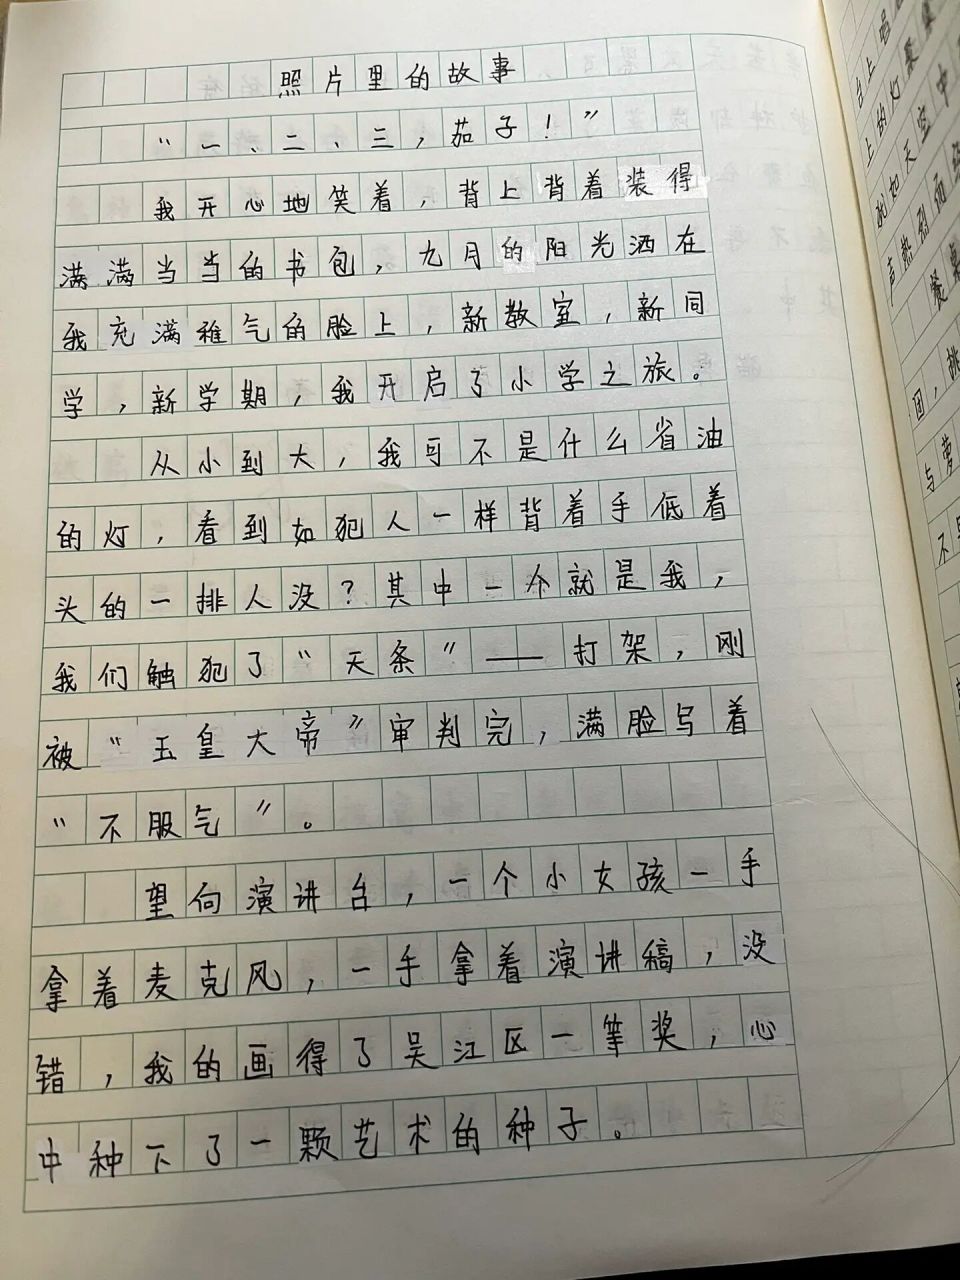 照片里的故事
“一、二、三，茄子！”
我开心地笑着，背上背着装得
满满当当的书包，九月的阳光洒在
我充满稚气的脸上，新教室，新同
学，新学期，我开启了小学之旅。
从小到大，我可不是什么省油
的灯，看到如犯人一样背着手低着
头的一排人没？其中一个就是我，
我们触犯了“天条”——打架，刚
被“玉皇大帝”审判完，满脸写着
“不服气”。
望向演讲台，一个小女孩一手
拿着麦克风，一手拿着演讲稿，没
错，我的画得了吴江区一等奖，心
中种下了一颗艺术的种子。
台上唱
上的灯
就如天空中
声热烈而
餐桌
团，挑
与萝
不